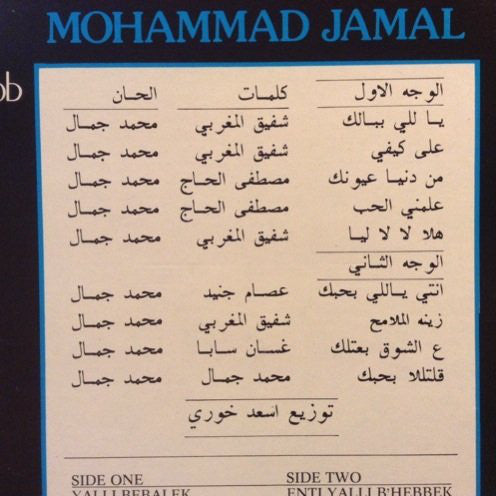 MOHAMMAD JAMAL
ob
الوجه الاول كلمات الحان
يا للي ببالك شفيق المغربي محمد جمال
على كيفي شفيق المغربي محمد جمال
من دنيا عيونك مصطفى الحاج محمد جمال
علمني الحب مصطفى الحاج محمد جمال
هلا لا لا ليا شفيق المغربي محمد جمال
الوجه الثاني
انتي ياللي بحبك عصام جنيد محمد جمال
زينه الملامح شفيق المغربي محمد جمال
ع الشوق بعتلك غسان سابا محمد جمال
قلتللا بحبك محمد جمال محمد جمال
توزيع اسعد خوري
SIDE ONE SIDE TWO
YALLI BEBALEK ENTI YALLI B'HEBBEK